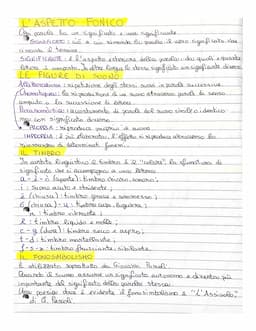 L'ASPETTO FONICO
Ogni parola ha un significato e una significante
SIGNIFICATO: ciò a cui rimanda la parola: il vero significato che
SIGNIFICANTE: è l'aspetto esteriore della parola: da quali e quante
lettere è composta. In altre lingue lo stesso significato un significante diverso.
LE FIGURE DI SUONO
Allitterazione: ripetizione degli stessi suoni in parole successive
Onomatopea: la riproduzione di un suono attraverso parole, la
o la successione di lettere
Paronomasia: accostamento di parole dal suono simile o identico
ma con significato diverso
PROPRIA: riproduce proprio il suono
IMPROPRIA: l'effetto si riproduce attraverso la
di determinati fonemi
IL TIMBRO
In ambito linguistico il timbro è il "colore", la sfumatura di
significato che si accompagna a una lettera
a - è - ò (aperte): timbro chiaro, sonoro;
i: suono acuto e stridente;
é (chiusa): timbro grave e sommesso;
ó (chiusa) - u: timbro cupo, lugubre;
n: timbro vibrante;
l: timbro liquido e molle;
c - g (dure): timbro secco e aspro;
t - d: timbro martellante;
f - s - z: timbro frusciante, sibilante.
IL FONOSIMBOLISMO
È utilizzato soprattutto da Giovanni Pascoli.
Quando il suono assume un significato autonomo e diventa più
importante del significato della parola stessa.
Una poesia dove è evidente il fonosimbolismo è "L'Assiuolo"
di G. Pascoli.